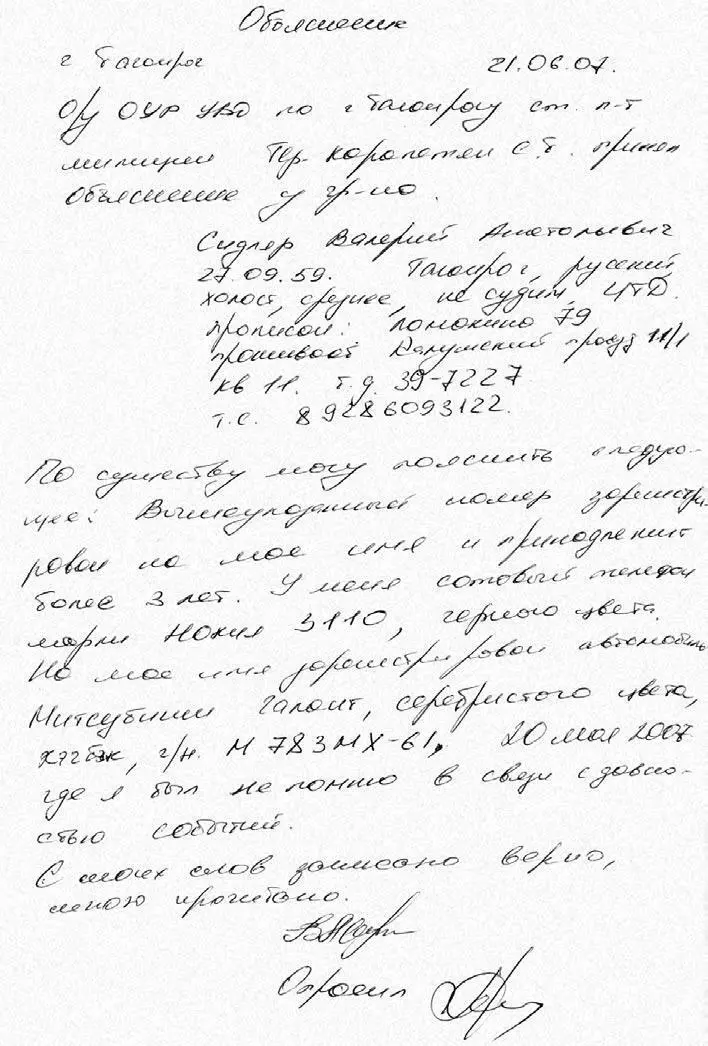 Объяснение
г Таганрог 21.06.07.
О/у ОУР УВД по г Таганрогу ст. л-т
милиции Тер-Карапетян С. принял
Объяснение у гр-на.
Сидлер Валерий Анатольевич
27.09.59. Таганрог, русский,
холост, среднее, не судим, ЦТД.
прописан: Ломакина 79
проживает Калужский проезд 11/1
кв 11. т.д. 39-7227
т.с. 89286093122.
По существу могу пояснить следую-
щее: Вышеуказанный номер зарегистри-
рован на мое имя и принадлежит
более 3 лет. У меня сотовый телефон
марки Нокия 3110, черного цвета.
На мое имя зарегистрирован автомобиль
Митсубиши Галант, серебристого цвета,
хэтбэк, г/н. М 783 МХ-61, 20 мая 2007
где я был не помню в связи с давно-
стью событий.
С моих слов записано верно,
мною прочитано.
Опросил